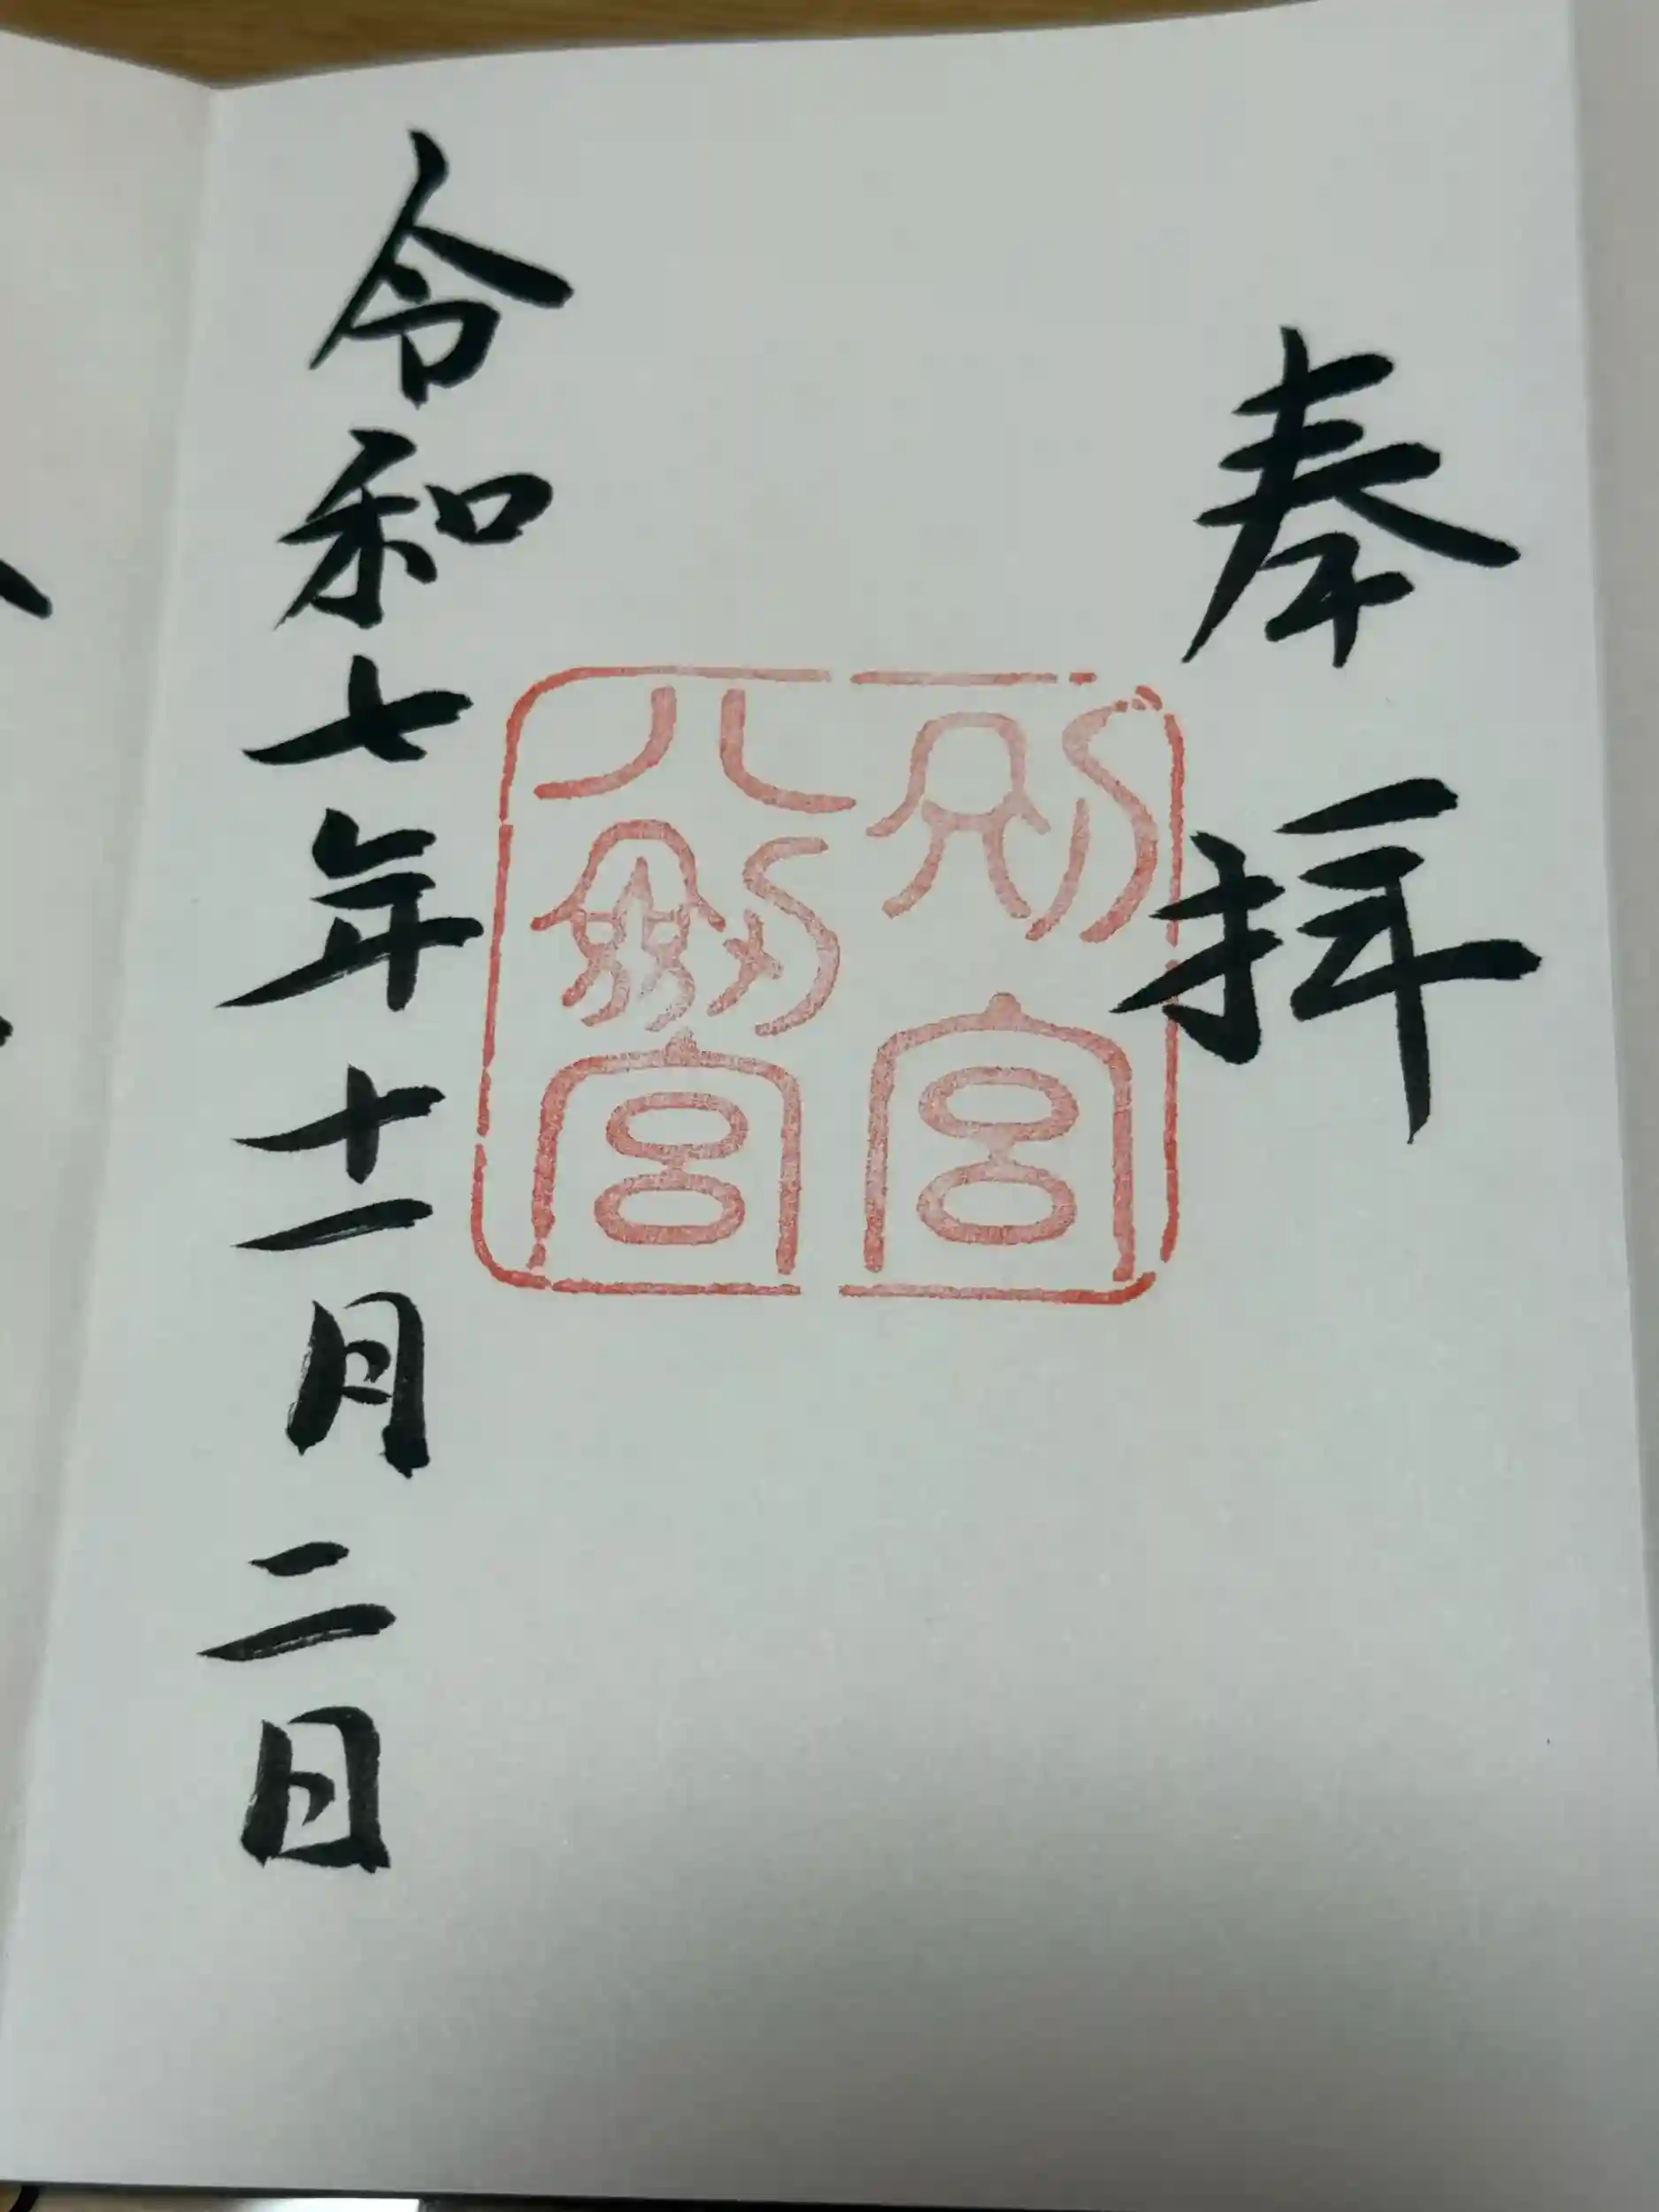 奉拝
別宮
八剱宮
令和七年十一月二日